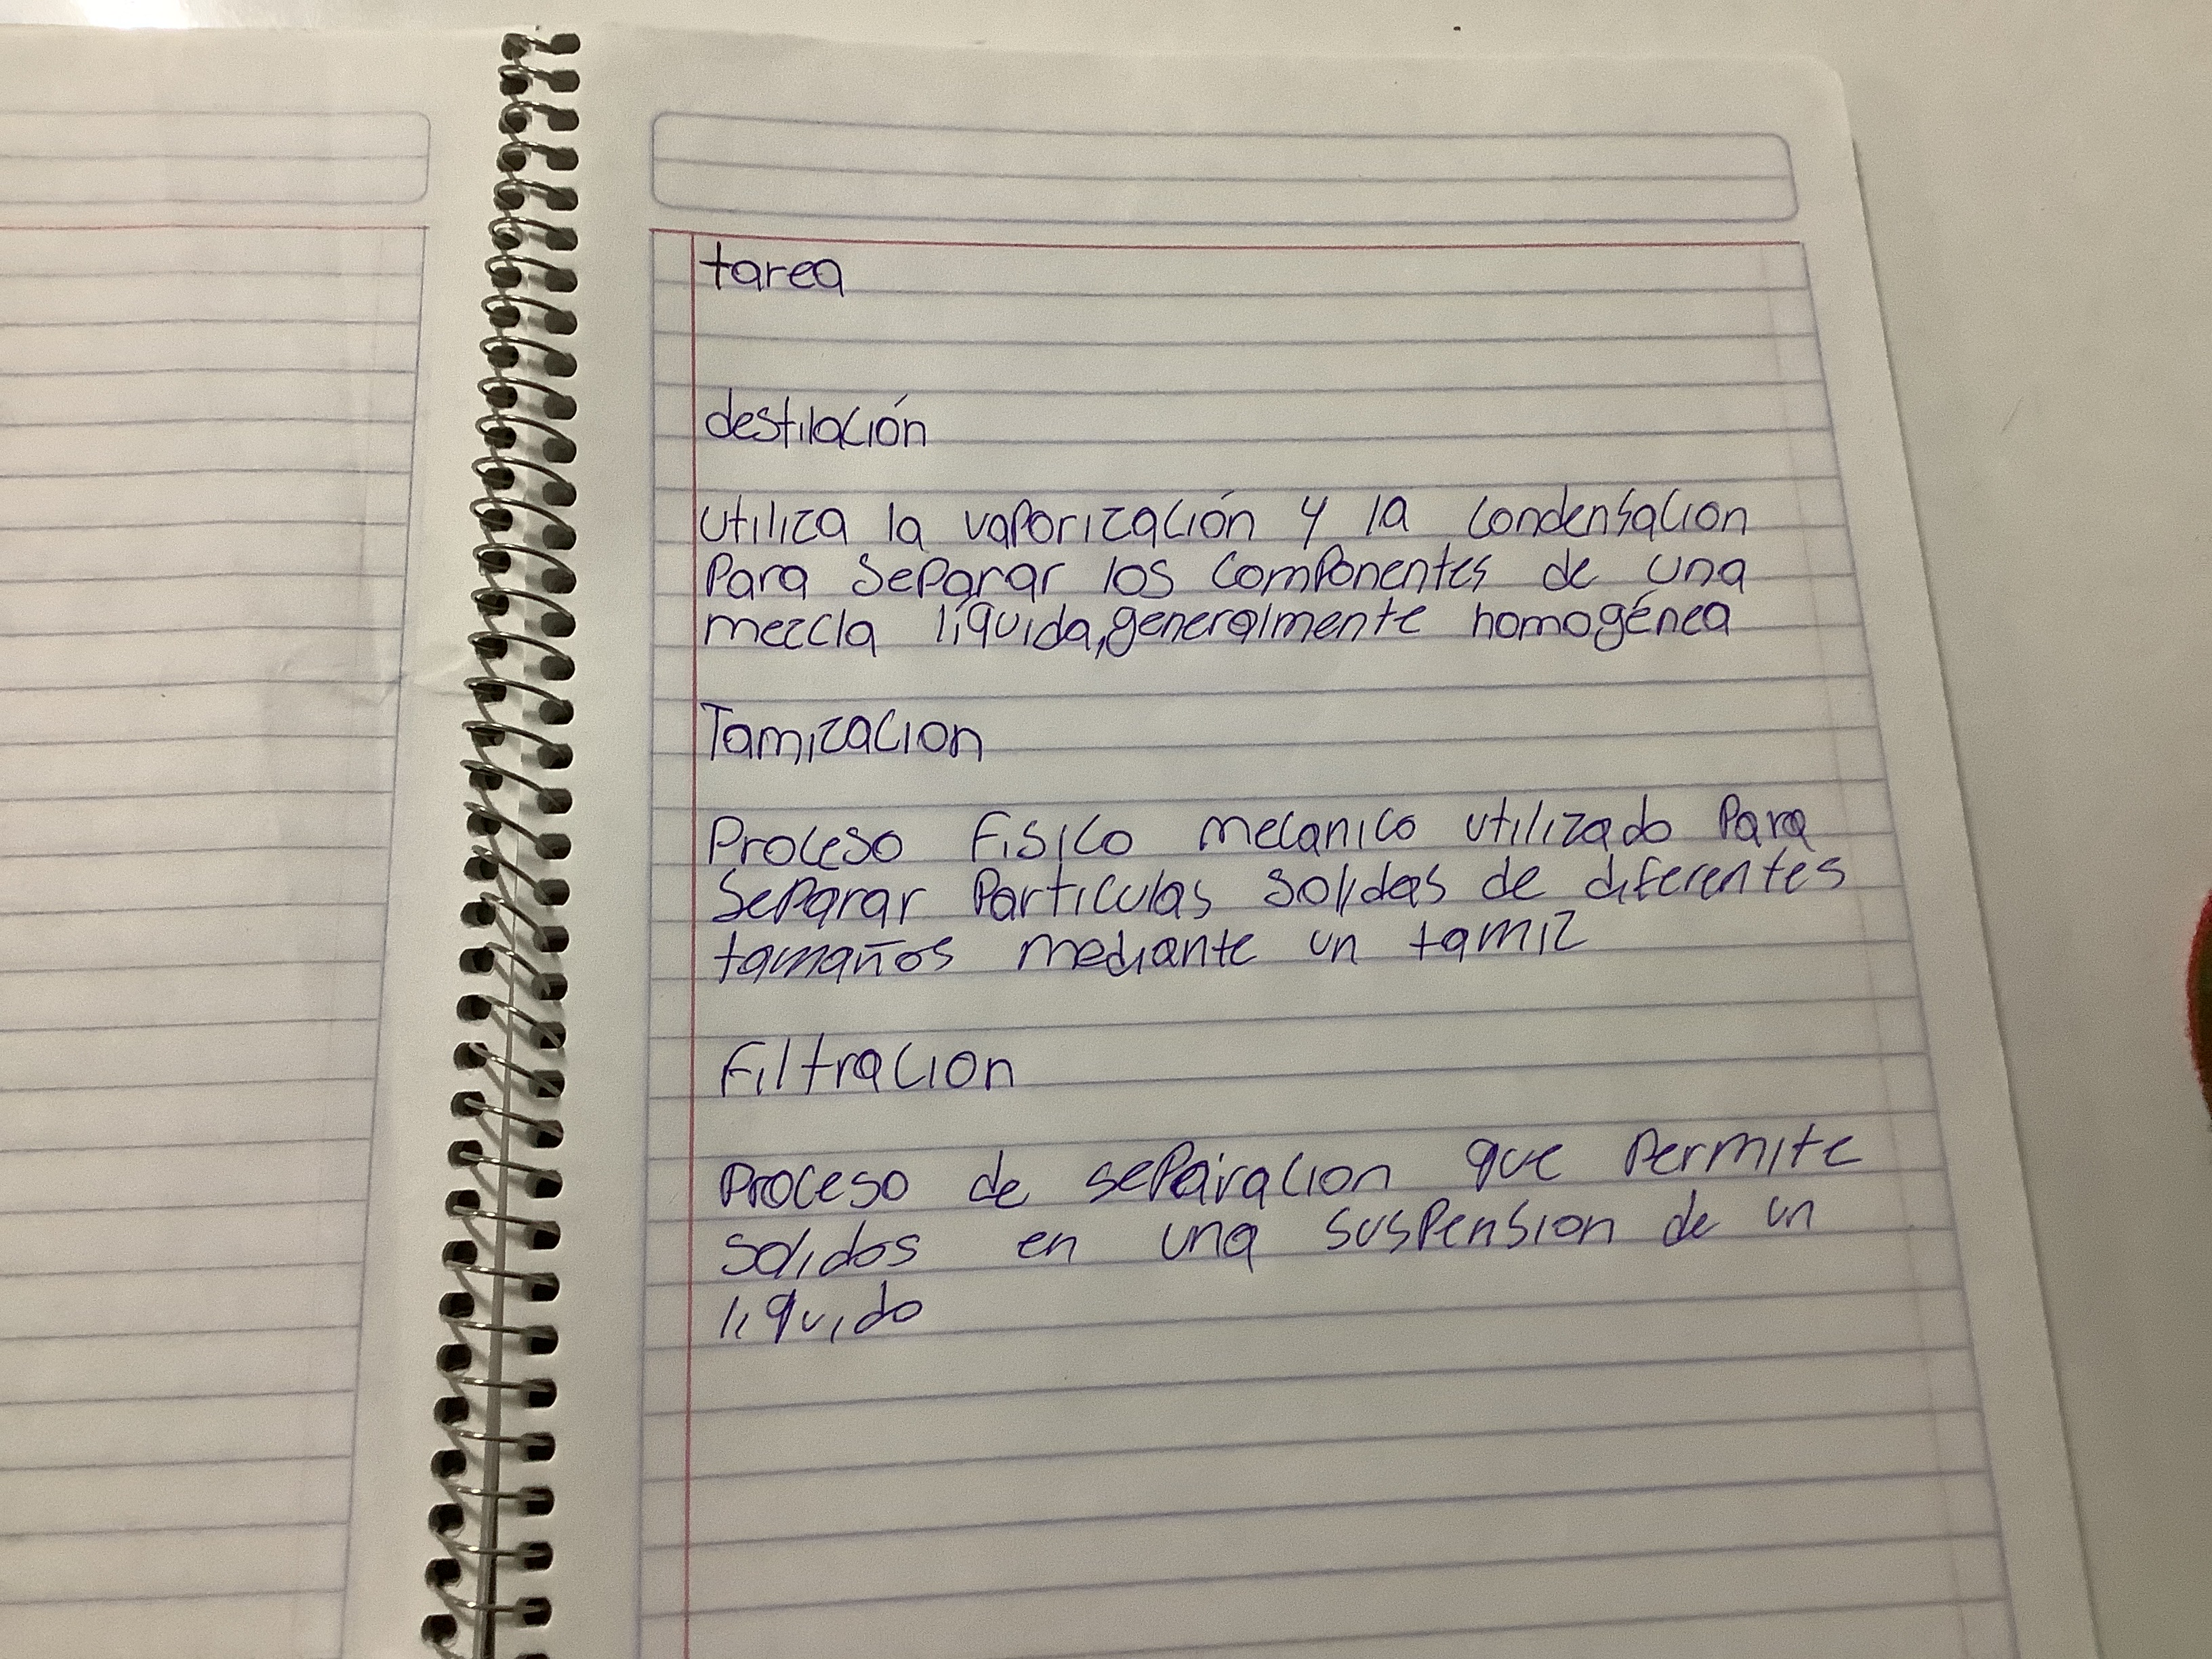 tarea
destilación
utiliza la vaporización y la condensacion
Para separar los componentes de una
mezcla líquida, generalmente homogénea
Tamizacion
Proceso Fisico mecanico utilizado Para
separar Particulas solidas de diferentes
tamaños mediante un tamiz
Filtracion
Proceso de separacion que permite
solidos en una suspension de un
liquido